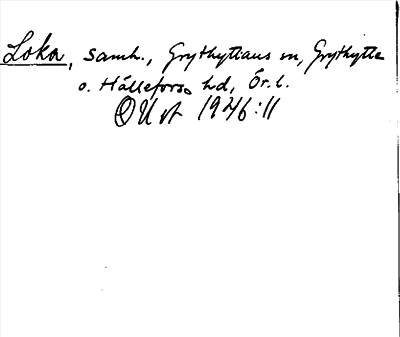 Loka, samh., Grythyttans sn, Grythytte
o. Hällefors hd, Ör. l.
OUst 1946:11